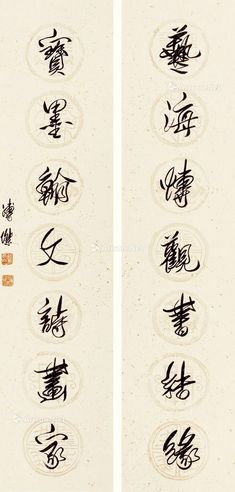 藝海愽觀書結緣
寶墨翰文詩畫家
溥傑